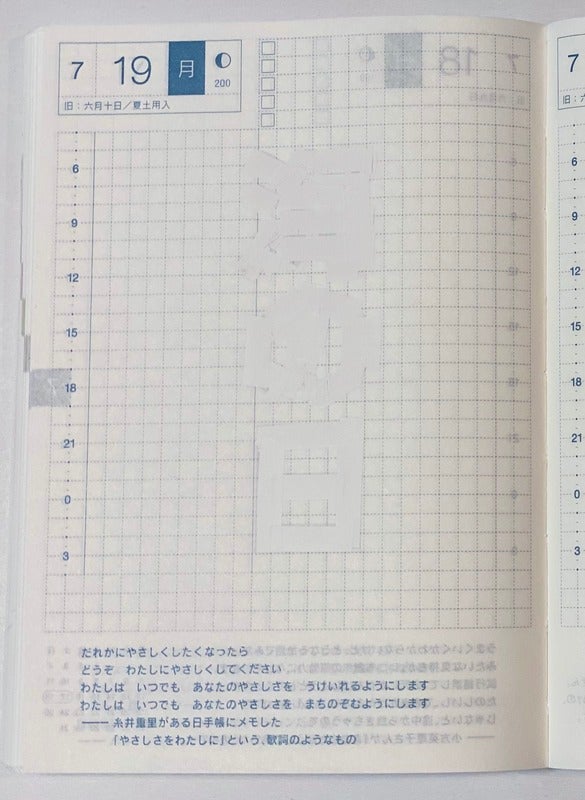 7 19 月
200
旧：六月十日／夏土用入
海の日
6
9
12
15
18
21
0
3
7
だれかにやさしくしたくなったら
どうぞ　わたしにやさしくしてください
わたしは　いつでも　あなたのやさしさを　うけいれるようにします
わたしは　いつでも　あなたのやさしさを　まちのぞむようにします
――糸井重里がある日手帳にメモした
「やさしさをわたしに」という、歌詞のようなもの
7
旧：六
6
9
12
15
18
21
0
3